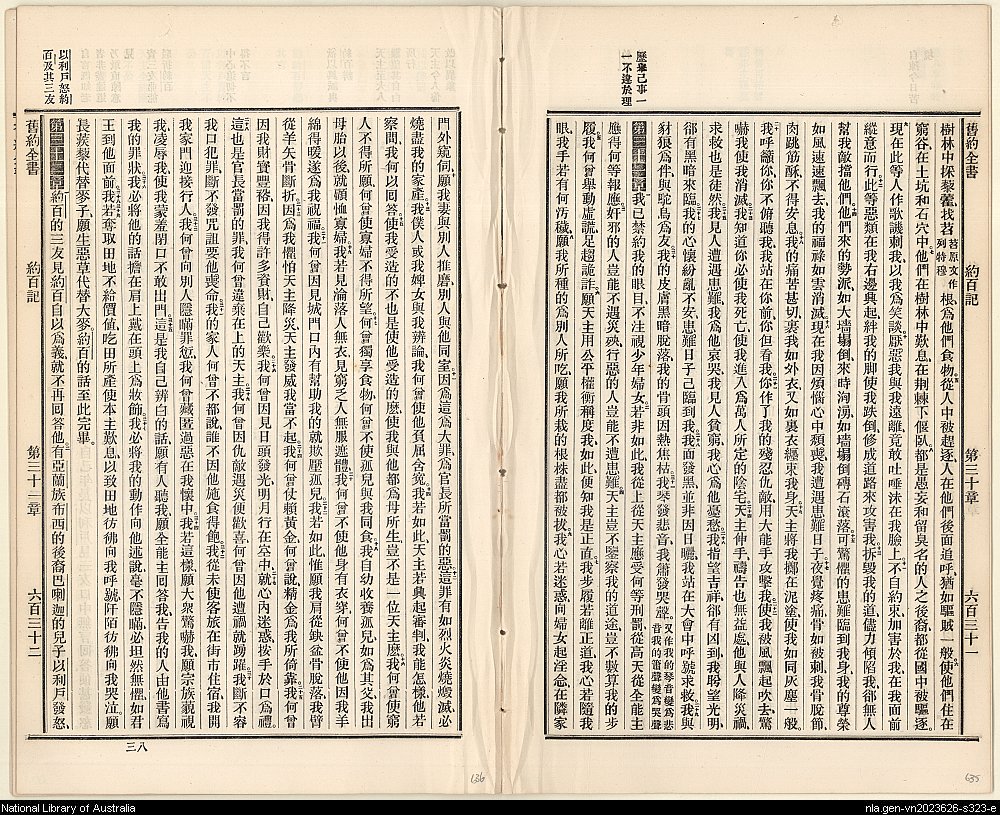 舊約全書
約百記
第三十章
六百三十一
歷舉己事一一不違於理
樹林中採藜藿、找苕苕原文作列特穆根爲他們食物、從人中被趕逐、人在他們後面追呼、猶如驅賊一般、使他們住在
窮谷、在土坑和石穴中、他們在樹林中歎息、在荆棘下偃臥、都是愚妄和留臭名的人之後裔、都從國中被驅逐、
現在此等人作歌譏刺我、以我爲笑談、厭惡我與我遠離、竟敢吐唾沫在我臉上、不自約束、加害於我、在我面前
縱意而行、此等惡類在我右邊興起、絆我的脚、使我跌倒、修成道路來攻害我、折毀我的道、儘力傾陷我、卻無人
幫我敵擋他們、他們來的勢派如大墻塌倒、來時洶湧如墻塌倒磚石滾落、可驚懼的患難臨到我身、我的尊榮
如風速速飄去、我的福祿如雲消滅、現在我因煩惱心中頹喪、我遭遇患難日子、夜覺疼痛、骨如被刺、我骨脫節、
肉跳筋酥、不得安息、我的痛苦甚切、裹我如外衣、又如裏衣纏束我身、天主將我擲在泥塗、使我如同灰塵一般、
我呼籲你、你不俯聽我、我站在你前、你但看我、你待我作了我的殘忍仇敵、用大能手攻擊我、使我被風飄起吹去、驚
嚇我、使我消滅、我知道你必使我死亡、使我進入爲萬人所定的陰宅、天主伸手、禱告也無益處、他與人降災禍、
求救也是徒然、我見人遭遇患難、我爲他哀哭、我見人貧窮、我心爲他憂愁、我指望吉祥、卻有凶到、我盼望光明、
卻有黑暗來臨、我的心懷紛亂不安、患難日子已臨到我、我面發黑、並非因日曬、我站在大會中呼號求救、我與
豺狼爲伴、與駝鳥爲友、我的皮膚黑暗脫落、我的骨頭因熱焦枯、我琴發悲音、我簫發哭聲、又作我的琴音變爲悲音我的簫聲變爲哭聲
第三十一章 我已禁約我的眼目、不注視少年婦女、若非如此、我從上從天主應受何等刑罰、從高天從全能主
應得何等報應、奸邪的人豈能不遇災殃、行惡的人豈能不遭患難、天主豈不鑒察我的道途、豈不數算我的步
履、我何曾舉動虛謊、足趨詭詐、願天主用公平權衡稱度我、如此便知我是正直、我步履若離正道、我心若隨我
眼、我手若有何汚穢、願我所種的爲別人所吃、願我所栽的根株盡都被拔、我心若迷惑向婦女起淫念、在隣家
門外窺伺、願我妻與別人推磨、別人與他同室、因爲這爲大罪、爲官長所當罰的惡、這罪有如烈火炎燒燬滅、必
燒盡我的家產、我僕人或我婢女與我辨論、我何曾使他負屈含寃、我若如此、天主若興起審判、我能怎樣、他若
察問、我何以回答、使他受造的不也是使我受造的麽、使我與他都爲母所生豈不是一位天主麽、我何曾使窮
人不得所願、何曾使寡婦不得所望、何曾獨享食物、何曾不使孤兒與我同食、我自幼收養孤兒如爲其父、我出
母胎以後就顧恤寡婦、我若見淪落人無衣、見窮乏人無服遮體、我何曾不使他身有衣穿、何曾不使他因我羊
綿得暖、遂爲我祝福、我何曾因見城門口內有幫助我的、就欺壓孤兒、我若如此、惟願我肩從鍁盆骨脫落、我臂
從羊矢骨斷折、因爲我懼怕天主降災、天主發威我當不起、我何曾仗賴黃金、何曾說精金爲我所倚靠、我何曾
因我財實豐裕、因我得許多貲財、自己歡樂、我何曾因見日頭發光、明月行在空中、就心內迷惑、按手於口爲禮、
這也是官長當罰的罪、我何曾違棄在上的天主、我何曾因仇敵遇災便歡喜、何曾因他遭禍就踴躍、我斷不容
我口犯罪、斷不發咒詛要他喪命、我的家人何曾不都說、誰不因他施食得飽、我從未使客旅在街市住宿、我開
我家門迎接行人、我何曾向別人隱瞞罪愆、我何曾藏匿過惡在我懷中、我若這樣、願大衆驚嚇我、願宗族藐視
我凌辱我、使我蒙羞閉口不敢出門、這是我自己辨白的話、願有人聽我、願全能主回答我、吿我的人由他書寫
我的罪狀、我必將他的話擔在肩上、戴在頭上爲妝飾、我必將我的動作向他述說、毫不隱瞞、必坦然無懼、如君
王到他面前、我若奪取田地不給價値、吃田所產使本主歎息、以致田地彷彿向我呼號、阡陌彷彿向我哭泣、願
長蒺藜代替麥子、願生惡草代替大麥、約百的話至此完畢。
第三十二章 約百的三友見約百自以爲義、就不再回答他、有亞蘭族布西的後裔巴喇迦的兒子以利戶發怒、
以利戶怒約百及其三友
舊約全書
約百記
第三十一章
六百三十二
三八
636
635
National Library of Australia
nla.gen-vn2023626-s323-e